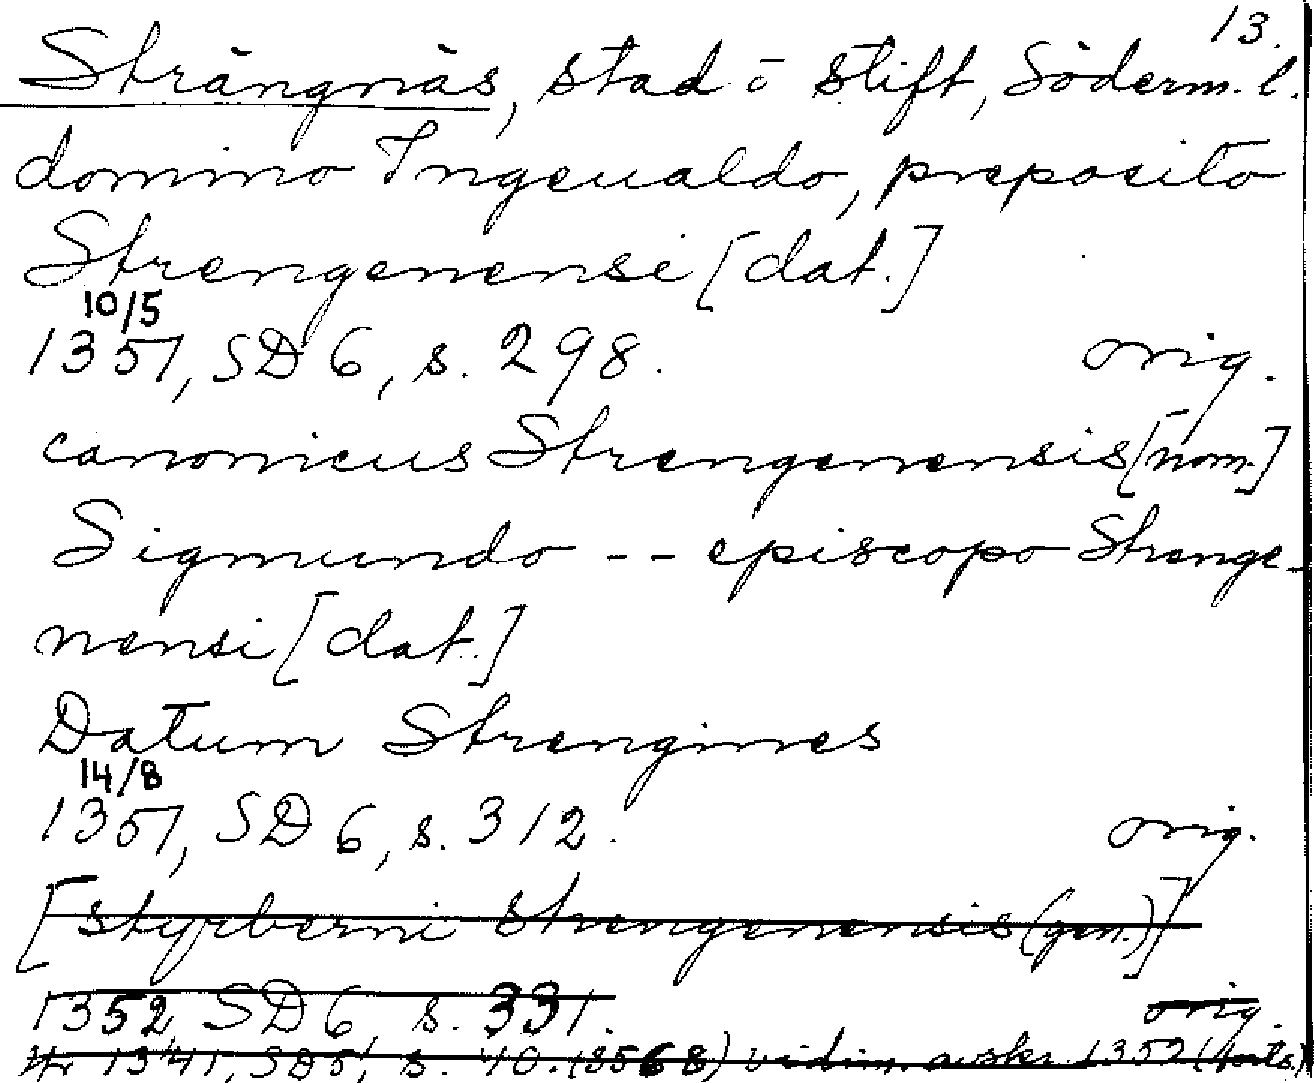 13.
Strängnäs, stad o stift, Söderm. l.
domino Ingeualdo, preposito
Strengenensi [dat.]
10/5
1351, SD 6, s. 298. orig.
canonicus Strengenensis [nom.]
Sigmundo -- episcopo Strenge-
nensi [dat.]
Datum Strengines
14/8
1351, SD 6, s. 312. orig.
[Styrberni Strengenensis (gen.)]
1352, SD 6, s. 331. orig.
1341, SD 5, s. 40. (3568) vidim. avskr. 1352 (forts.)